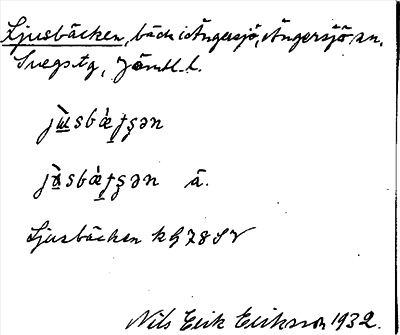 Ljusbäcken, bäck i Ängersjö, Ängersjö sn,
Svegs tg, Jämtl. l.
jùsbæ̀tşən
jùsbæ̀tşən ä.
Ljusbäcken kg 78 SV
Nils Erik Eriksson 1932.